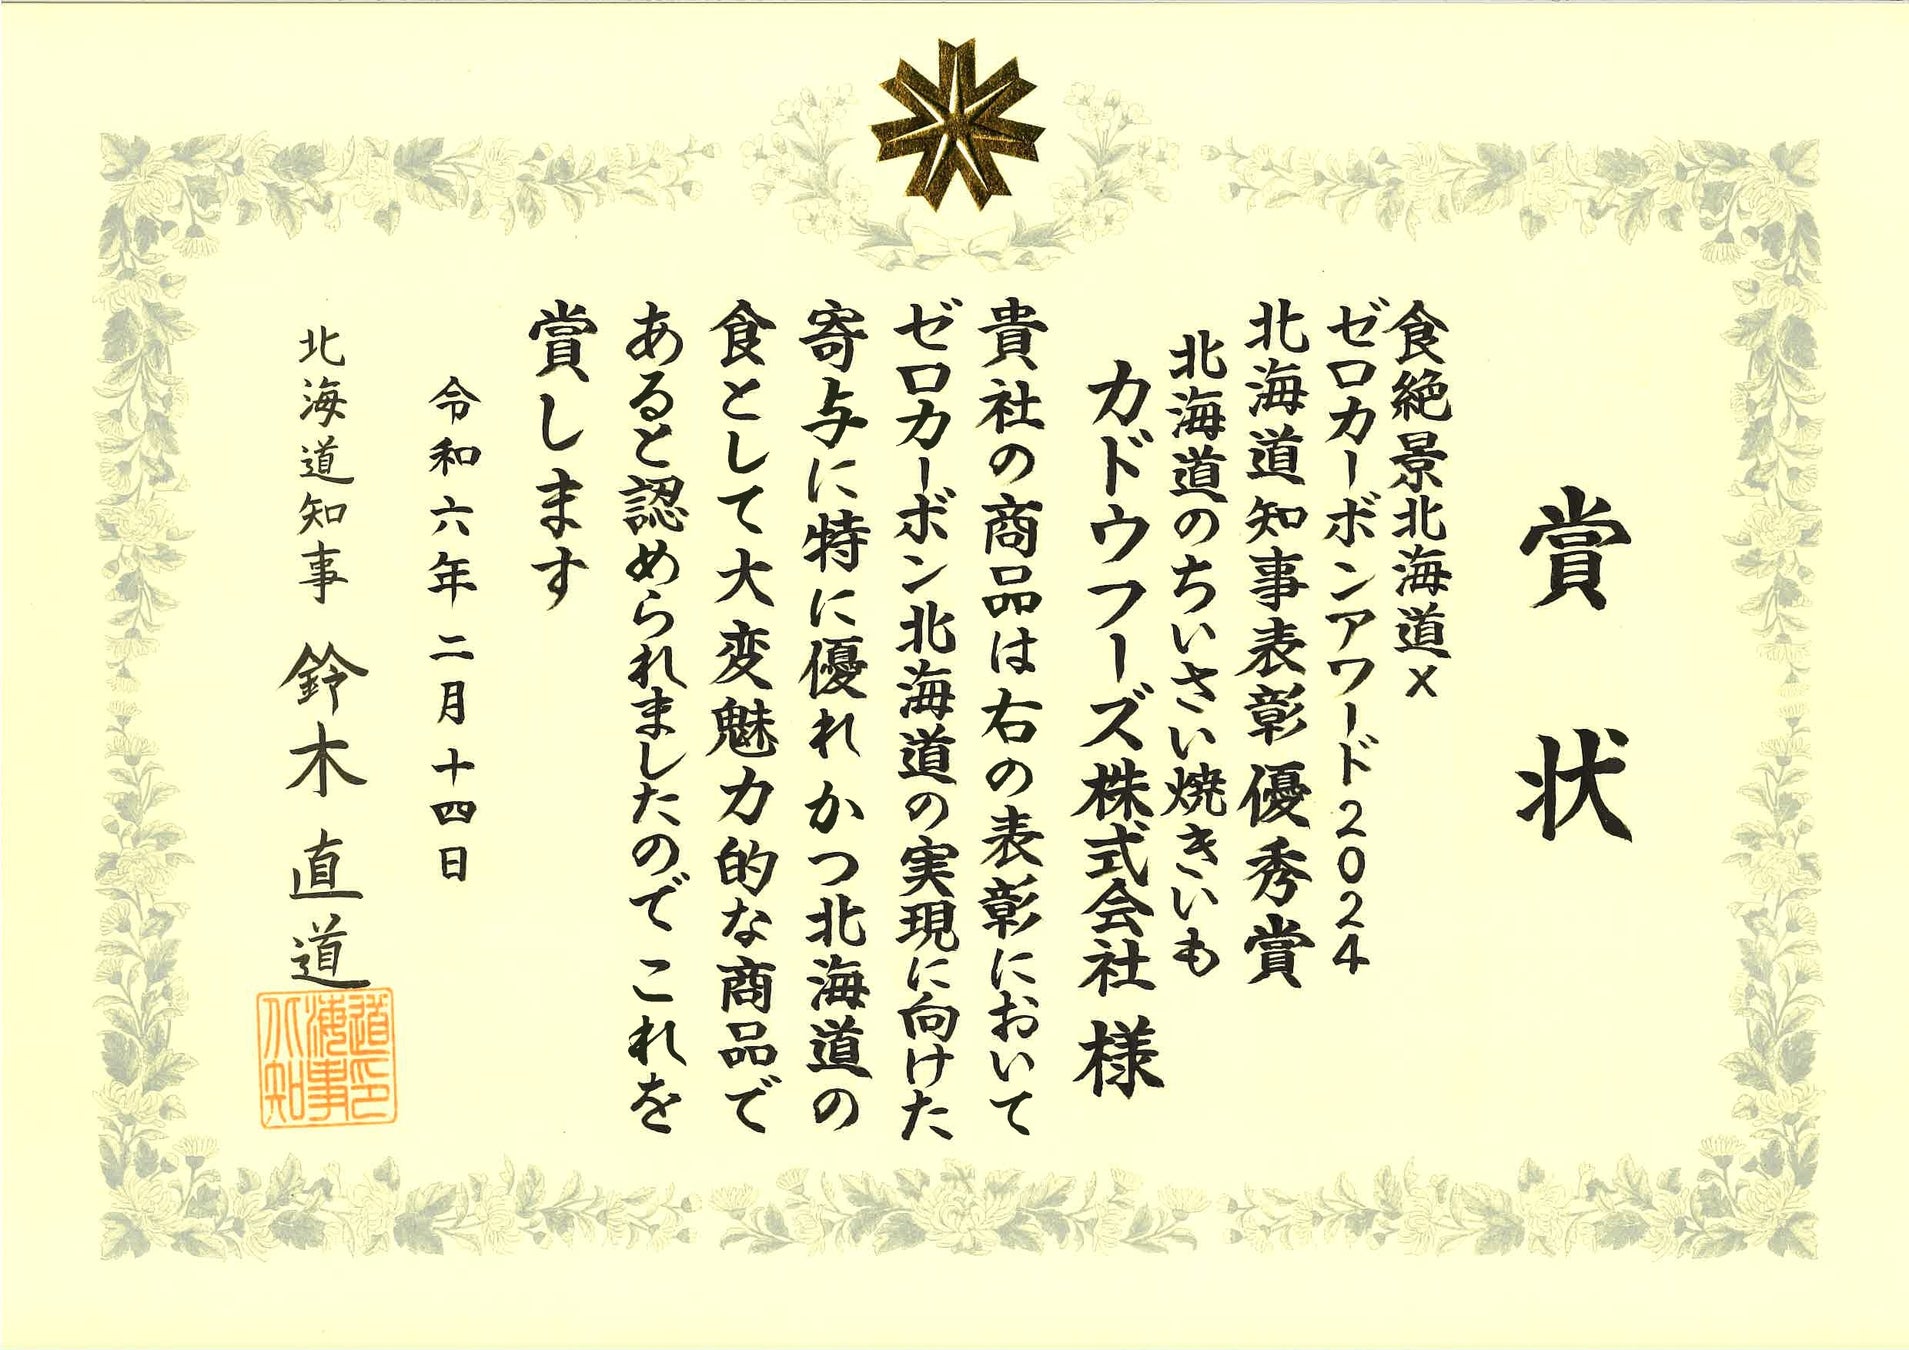 賞状
食絶景北海道×
ゼロカーボンアワード2024
北海道知事表彰優秀賞
北海道のちいさい焼きいも
カドウフーズ株式会社 様
貴社の商品は右の表彰において
ゼロカーボン北海道の実現に向けた
寄与に特に優れかつ北海道の
食として大変魅力的な商品で
あると認められましたので これを
賞します
令和六年二月十四日
北海道知事 鈴木直道
北海道知事印